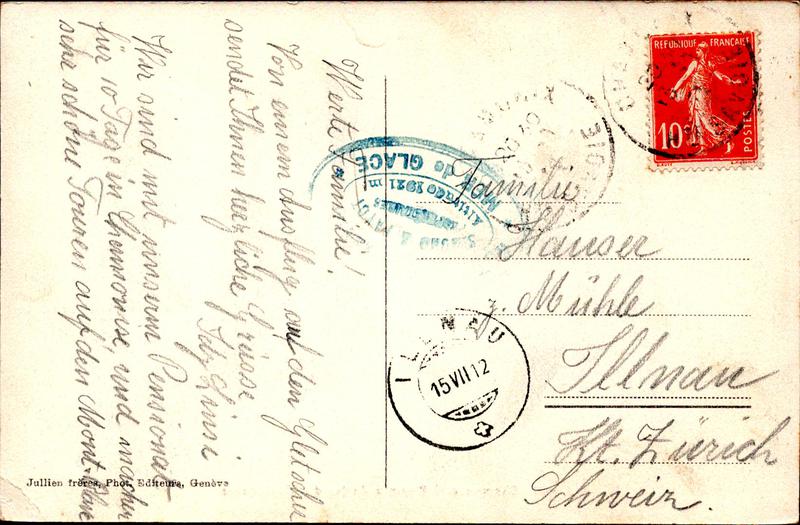 Werte Familie!
Von einem Ausflug auf den Gletscher
sendet Ihnen herzliche Grüsse
Wir sind mit unserm Pensionat
für 10 Tage in Chamonix und machen
sehr schöne Touren auf den Mont-Blanc
Jullien frères, Phot. Editeurs, Genève
MER de GLACE
Altitude 1921 m
REPUBLIQUE FRANÇAISE
10
POSTES
Familie
Hauser
z. Mühle
Illnau
Kt. Zürich
Schweiz.
ILLNAU
15 VII 12